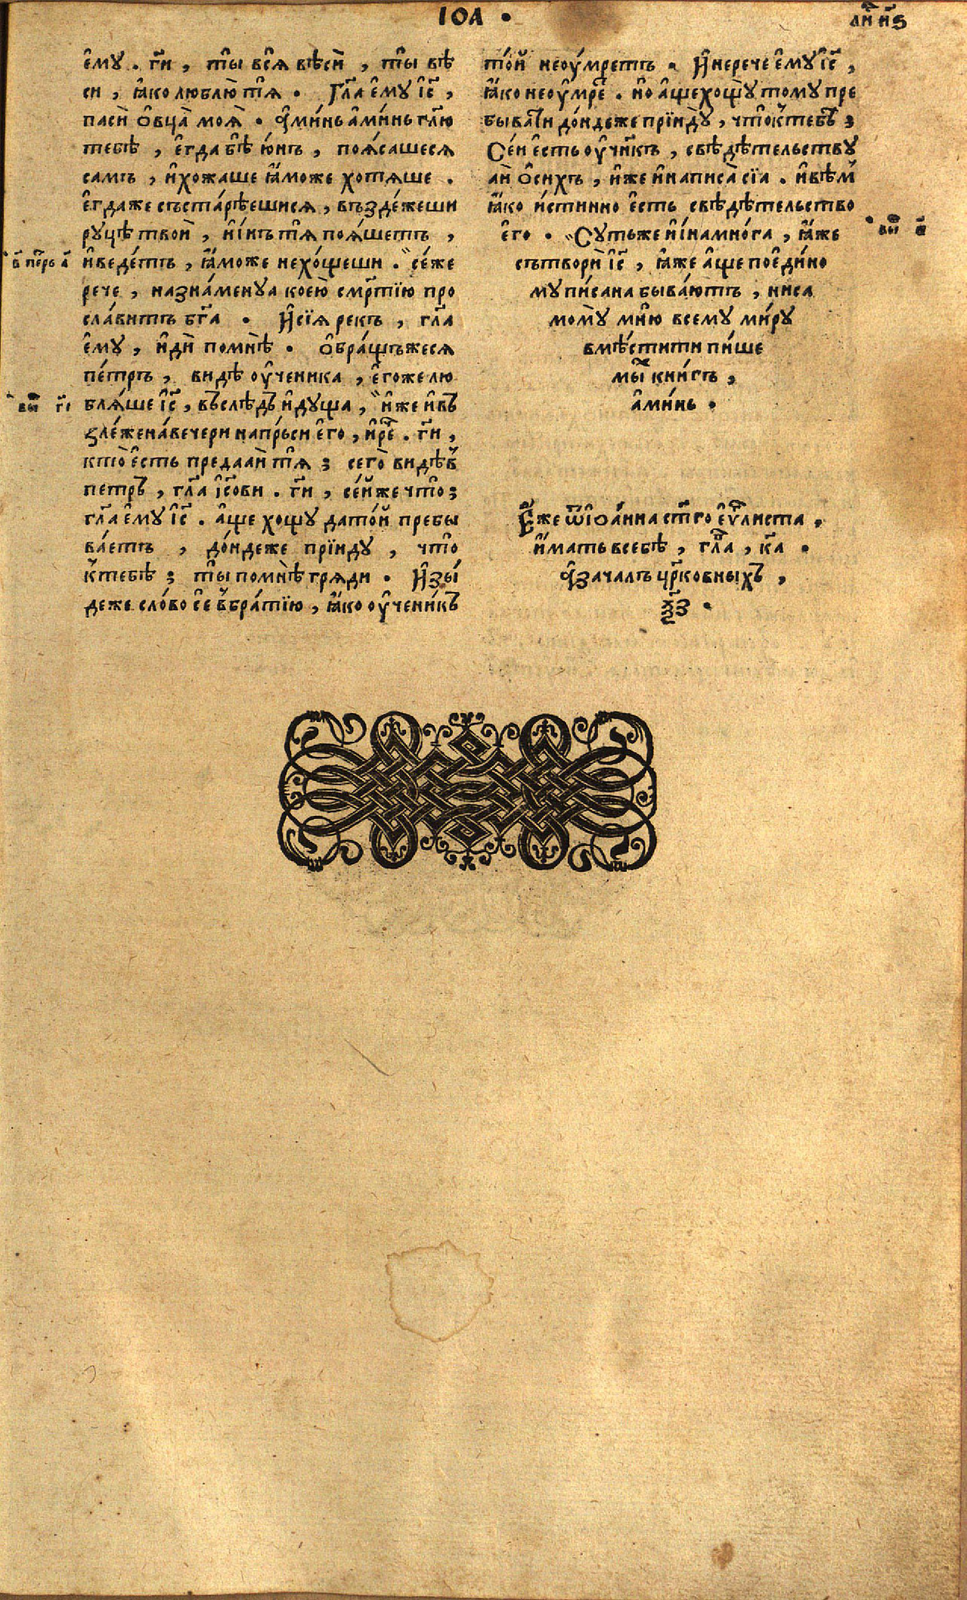 ІѠА .
л҃и н҃ѕ
ѐмꙋ . гⷭ҇и , ты вся вѣсѝ , ты вѣ
си , ꙗ҆ко люблю́ тѧ . Гл҃а ѐмꙋ і҆с҃ ,
пасѝ ѻ҆вца̀ моѧ̀ . а҆ми́нь а҆ми́нь гл҃ю
тебѣ̀ , є҆гда бѣ̀ ю҆нъ , поꙗ́сашесѧ
самъ , и҆ хожаше ꙗ҆́може хотѧ́ше .
є҆гдаже състарѣ́ешисѧ , въздѣ́жеши
рꙋцѣ̀ твоѝ , и҆ и҆нъ тѧ поꙗ́шетъ ,
и҆ веде́тъ , ꙗ҆́може нехо́щеши . се́же
речѐ , назна́менꙋа коею̀ смр҃тїю про
сла́витъ бг҃а . И҆ сїѧ̀ рекъ , гл҃а
є҆мꙋ̀ , и҆дѝ помнѣ̀ . ѻ҆бра́щъжесѧ
пе́тръ , видѣ̀ ᲂу҆ченика̀ , є҆гоже лю
блѧ́ше і҆с҃ , въслѣ́дъ и҆дꙋща , и҆́же и҆ въ
зле́же на́вечери напръси є҆го̀ , и҆ речѐ . гⷭ҇и ,
кто̀ є҆сть предаѧ́и тѧ ; сего̀ видѣ́въ
петръ , гл҃а і҆с҃ови . гⷭ҇и , се́йже что̀ ;
гл҃а є҆мꙋ̀ і҆с҃ . а҆́ще хощꙋ̀ да то́й пребы
ва́етъ , до́ндеже прїидꙋ̀ , что̀
к тебѣ̀ ; ты̀ помнѣ̀ грѧдѝ . И҆зы́
деже сло́во сѐ в бра́тїю , ꙗ҆́ко ᲂу҆чени́къ
то́й не ᲂу҆́мретъ . И҆ не речѐ є҆мꙋ̀ і҆с҃ ,
ꙗ҆́ко не ᲂу҆́мре . но а҆́ще хощꙋ̀ томꙋ̀ пре
быва́ти до́ндеже прїидꙋ̀ , что̀ к тебѣ̀ ;
Се́й є҆́сть ᲂу҆чн҃къ , свѣдѣ́тельствꙋ
ѧ́й ѻ҆ си́хъ , и҆́же и҆ написа̀ сїа̀ . и҆ вѣ́м
ꙗ҆́ко и҆́стинно є҆́сть свѣдѣ́тельство
є҆го̀ . Сꙋ́тьже и҆ и҆́на мно́га , ꙗ҆́же
сътворѝ і҆с҃ , ꙗ҆́же а҆́ще поє҆ди́но
мꙋ пи́сана быва́ютъ , ни са
момꙋ̀ мню̀ всемꙋ мирꙋ
вмѣсти́ти пи́ше
мы́х кни́гъ ,
а҆ми́нь .
Є҆́же ѿ і҆ѡа́нна ст҃го є҆ѵⷢ҇листа ,
и҆́мать в себѣ̀ , гла҃ , к҃а .
а҆ зача́лъ цр҃ковныхъ ,
ѯ҃з .